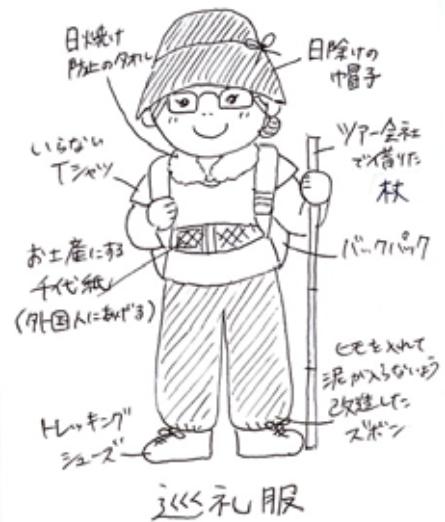 日焼け
防止のタオル
日除けの
帽子
いらない
Tシャツ
ツアー会社
で借りた
杖
お土産にする
千代紙
(外国人にあげる)
バックパック
ヒモを入れて
泥が入らないよう
改造した
ズボン
トレッキング
シューズ
巡礼服